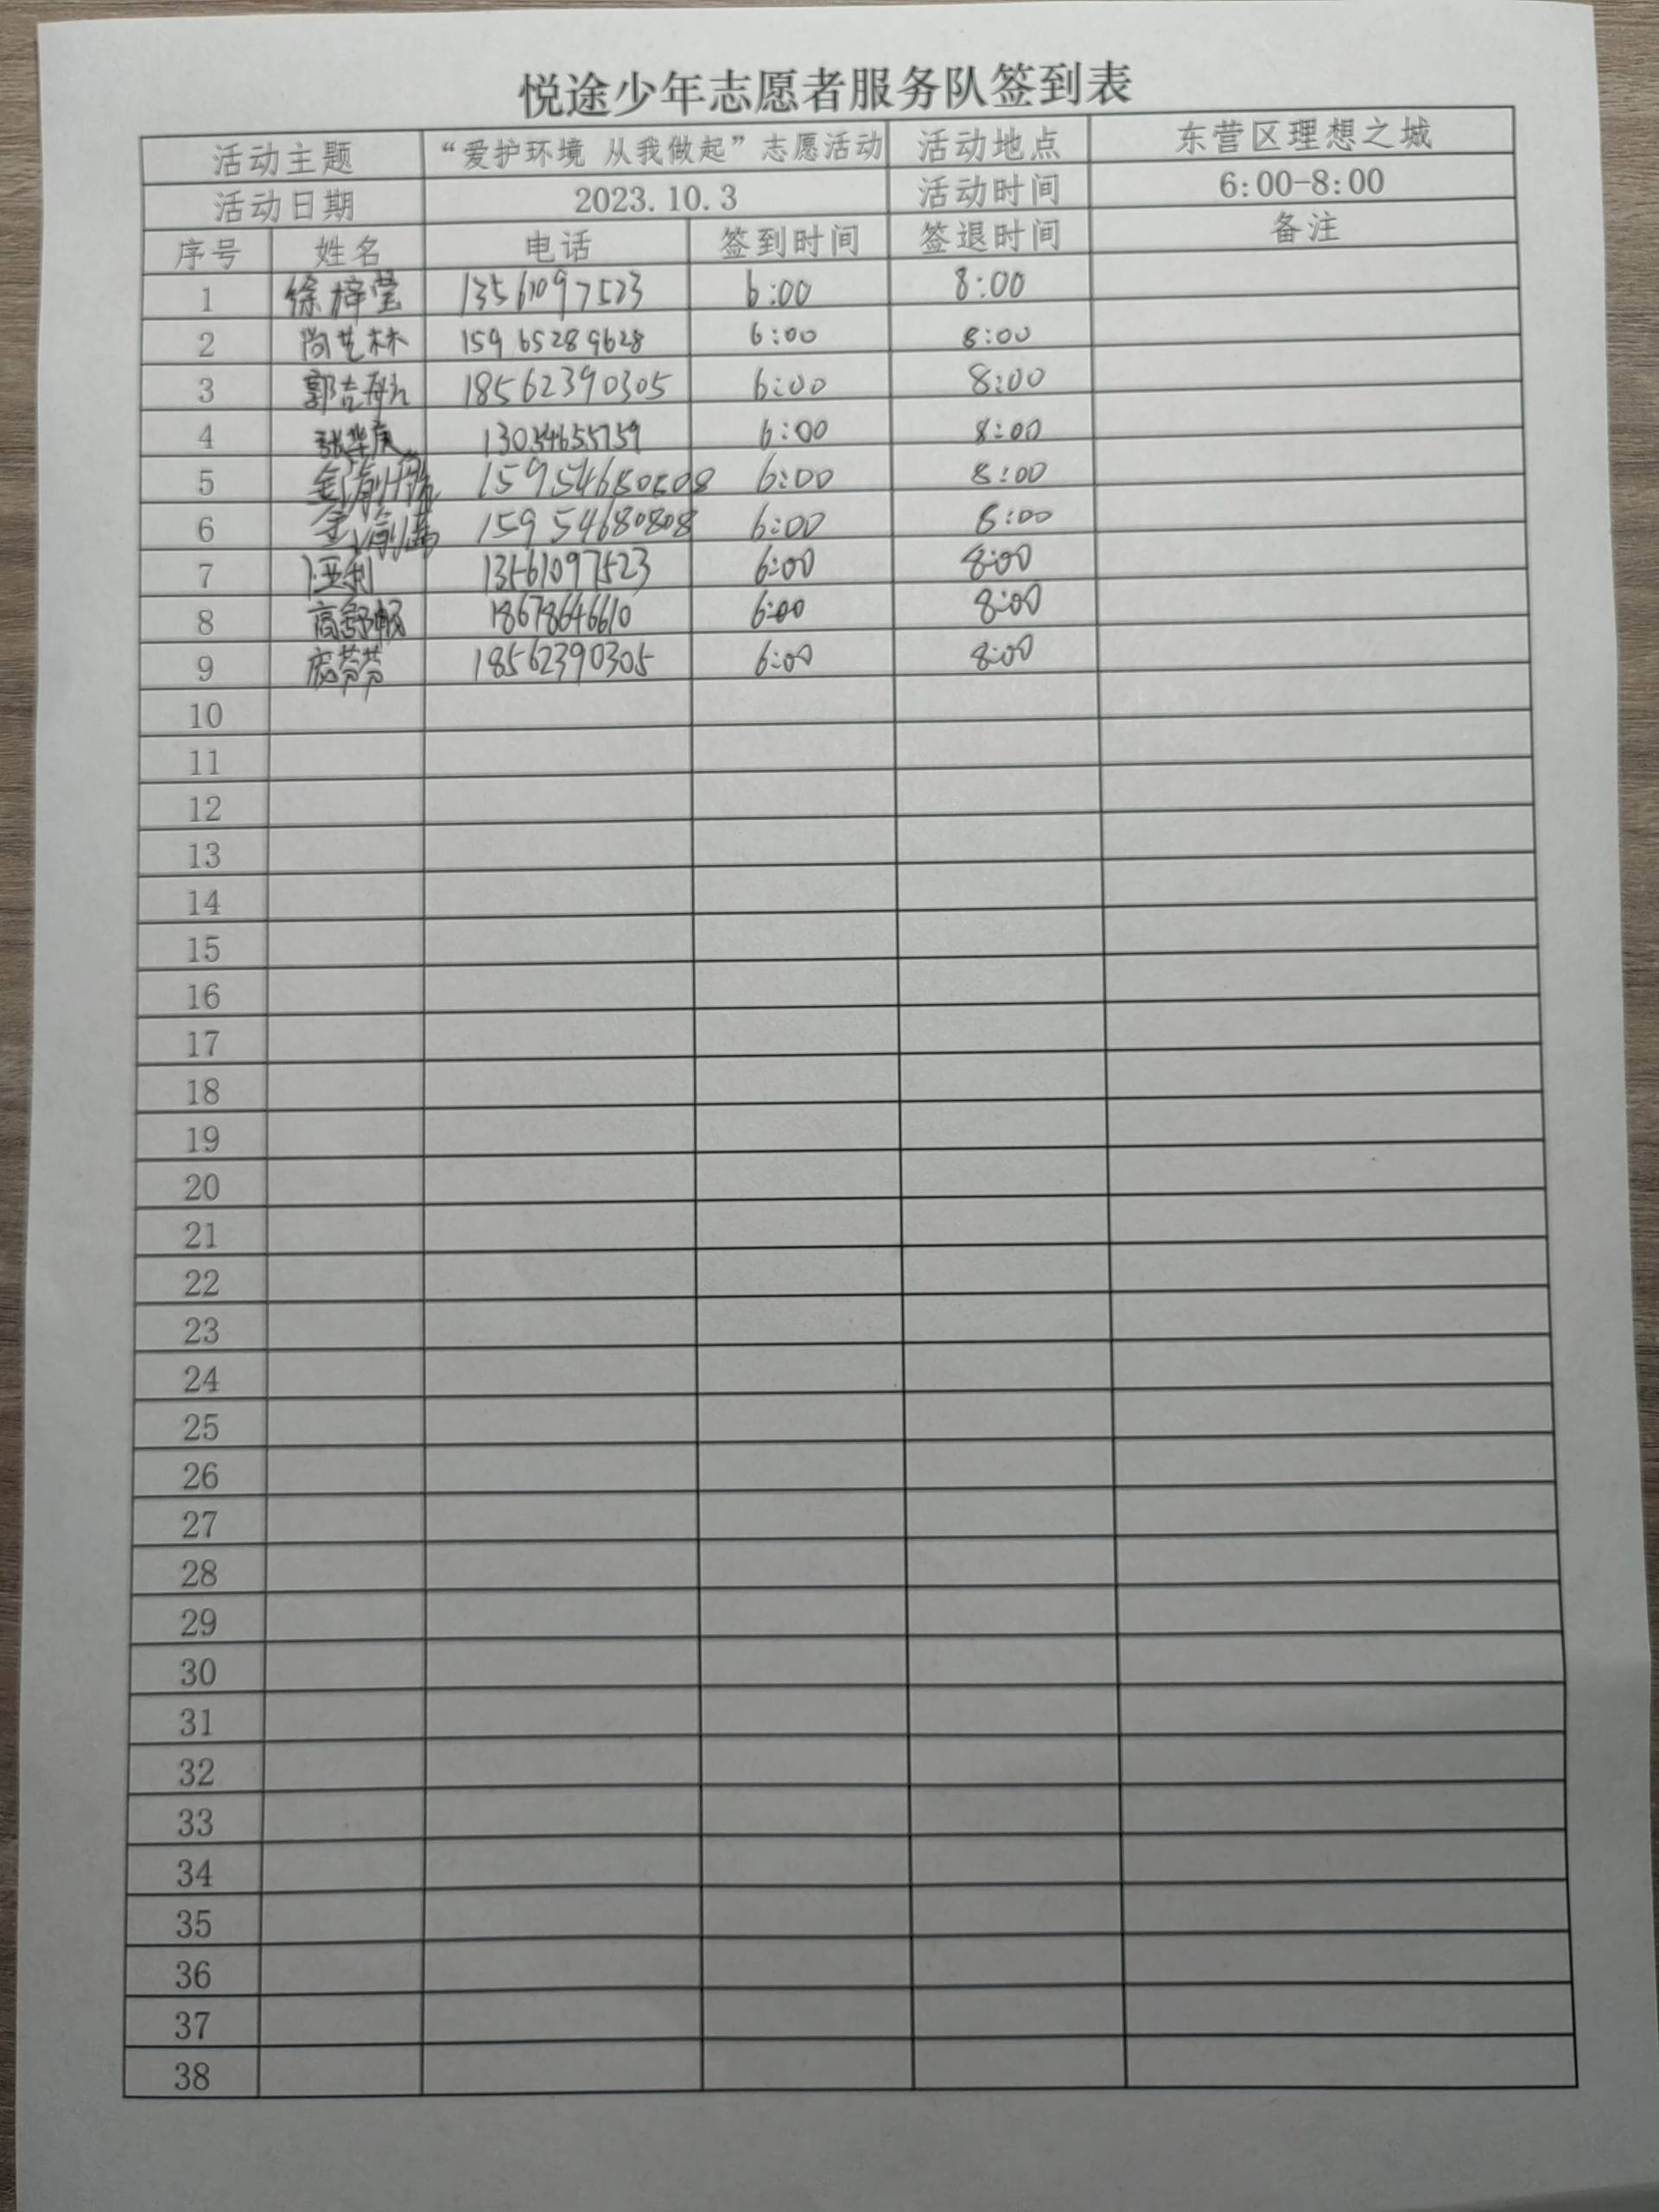 悦途少年志愿者服务队签到表
活动主题 “爱护环境 从我做起”志愿活动 活动地点 东营区理想之城
活动日期 2023.10.3 活动时间 6:00-8:00
序号 姓名 电话 签到时间 签退时间 备注
1 徐梓莹 13561097523 6:00 8:00
2 尚艺林 15965289628 6:00 8:00
3 郭 18562390305 6:00 8:00
4 张 13034655759 6:00 8:00
5 6:00 8:00
6 15954680808 6:00 8:00
7 13561097523 6:00 8:00
8 高舒帆 18678646610 6:00 8:00
9 庞芬芬 18562390305 6:00 8:00
10
11
12
13
14
15
16
17
18
19
20
21
22
23
24
25
26
27
28
29
30
31
32
33
34
35
36
37
38